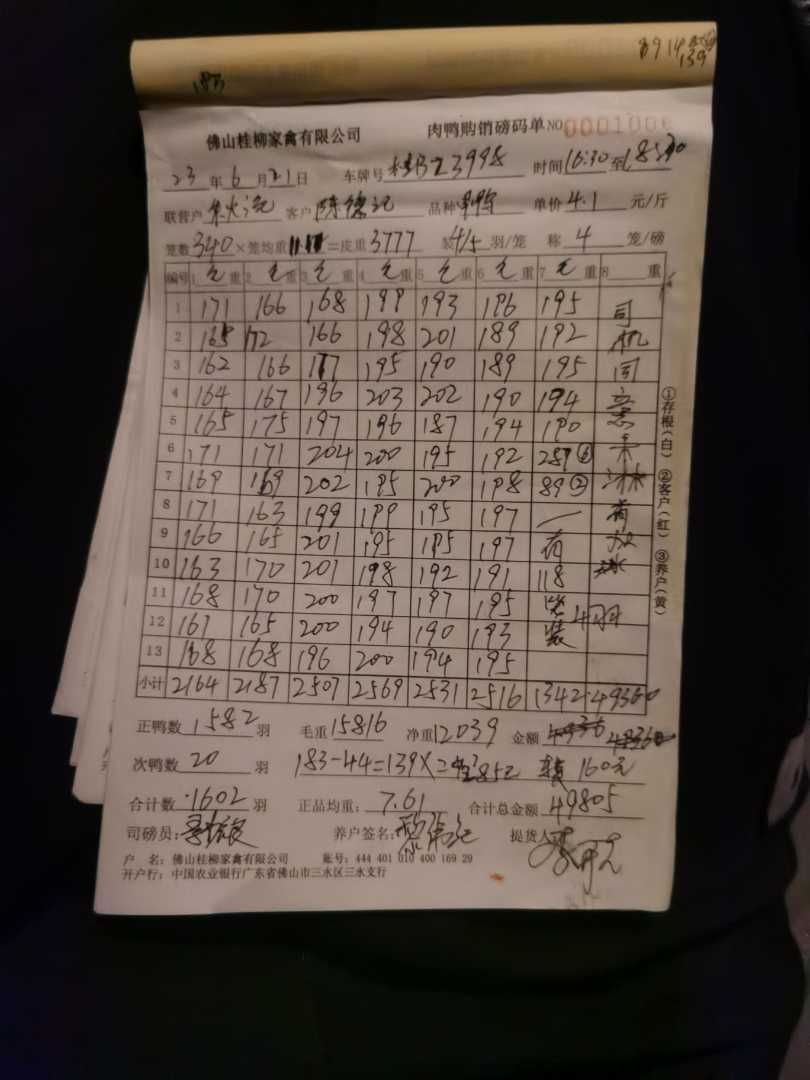 8914
139
183
佛山桂柳家禽有限公司 肉鸭购销磅码单 NO 0001006
23 年 6 月 21 日 车牌号 23998 时间 16:30 至 18:30
联营户 客户 陈德记 品种 单价 4.1 元/斤
笼数 340 ×笼均重 11.11 =皮重 3777 装 4/5 羽/笼 称 4 笼/磅
编号 1 毛 重 2 毛 重 3 毛 重 4 毛 重 5 毛 重 6 毛 重 7 毛 重 8 重
1 171 166 168 199 193 196 195 司
2 165 172 166 198 201 189 192 机
3 162 166 177 195 190 189 195 同
4 164 167 196 203 202 190 194 意
5 165 175 197 196 187 194 190
6 171 171 204 200 195 192 289⑥
7 169 169 202 195 200 198 89② 淋
8 171 163 199 199 195 197 —
9 166 165 201 195 195 197
10 163 170 201 198 192 191 118 冰
11 168 170 200 197 197 195 笼 4羽
12 161 165 200 194 190 193 装
13 168 168 196 200 194 195
小计 2164 2187 2507 2569 2531 2516 1342 49360
正鸭数 1582 羽 毛重 15816 净重 12039 金额 49360
次鸭数 20 羽 183-44=139× 285 160元
合计数 1602 羽 正品均重: 7.61 合计总金额 49805
司磅员: 养户签名: 提货人
户 名: 佛山桂柳家禽有限公司 账号: 444 401 010 400 169 29
开户行: 中国农业银行广东省佛山市三水区三水支行
①存根(白) ②客户(红) ③养户(黄)